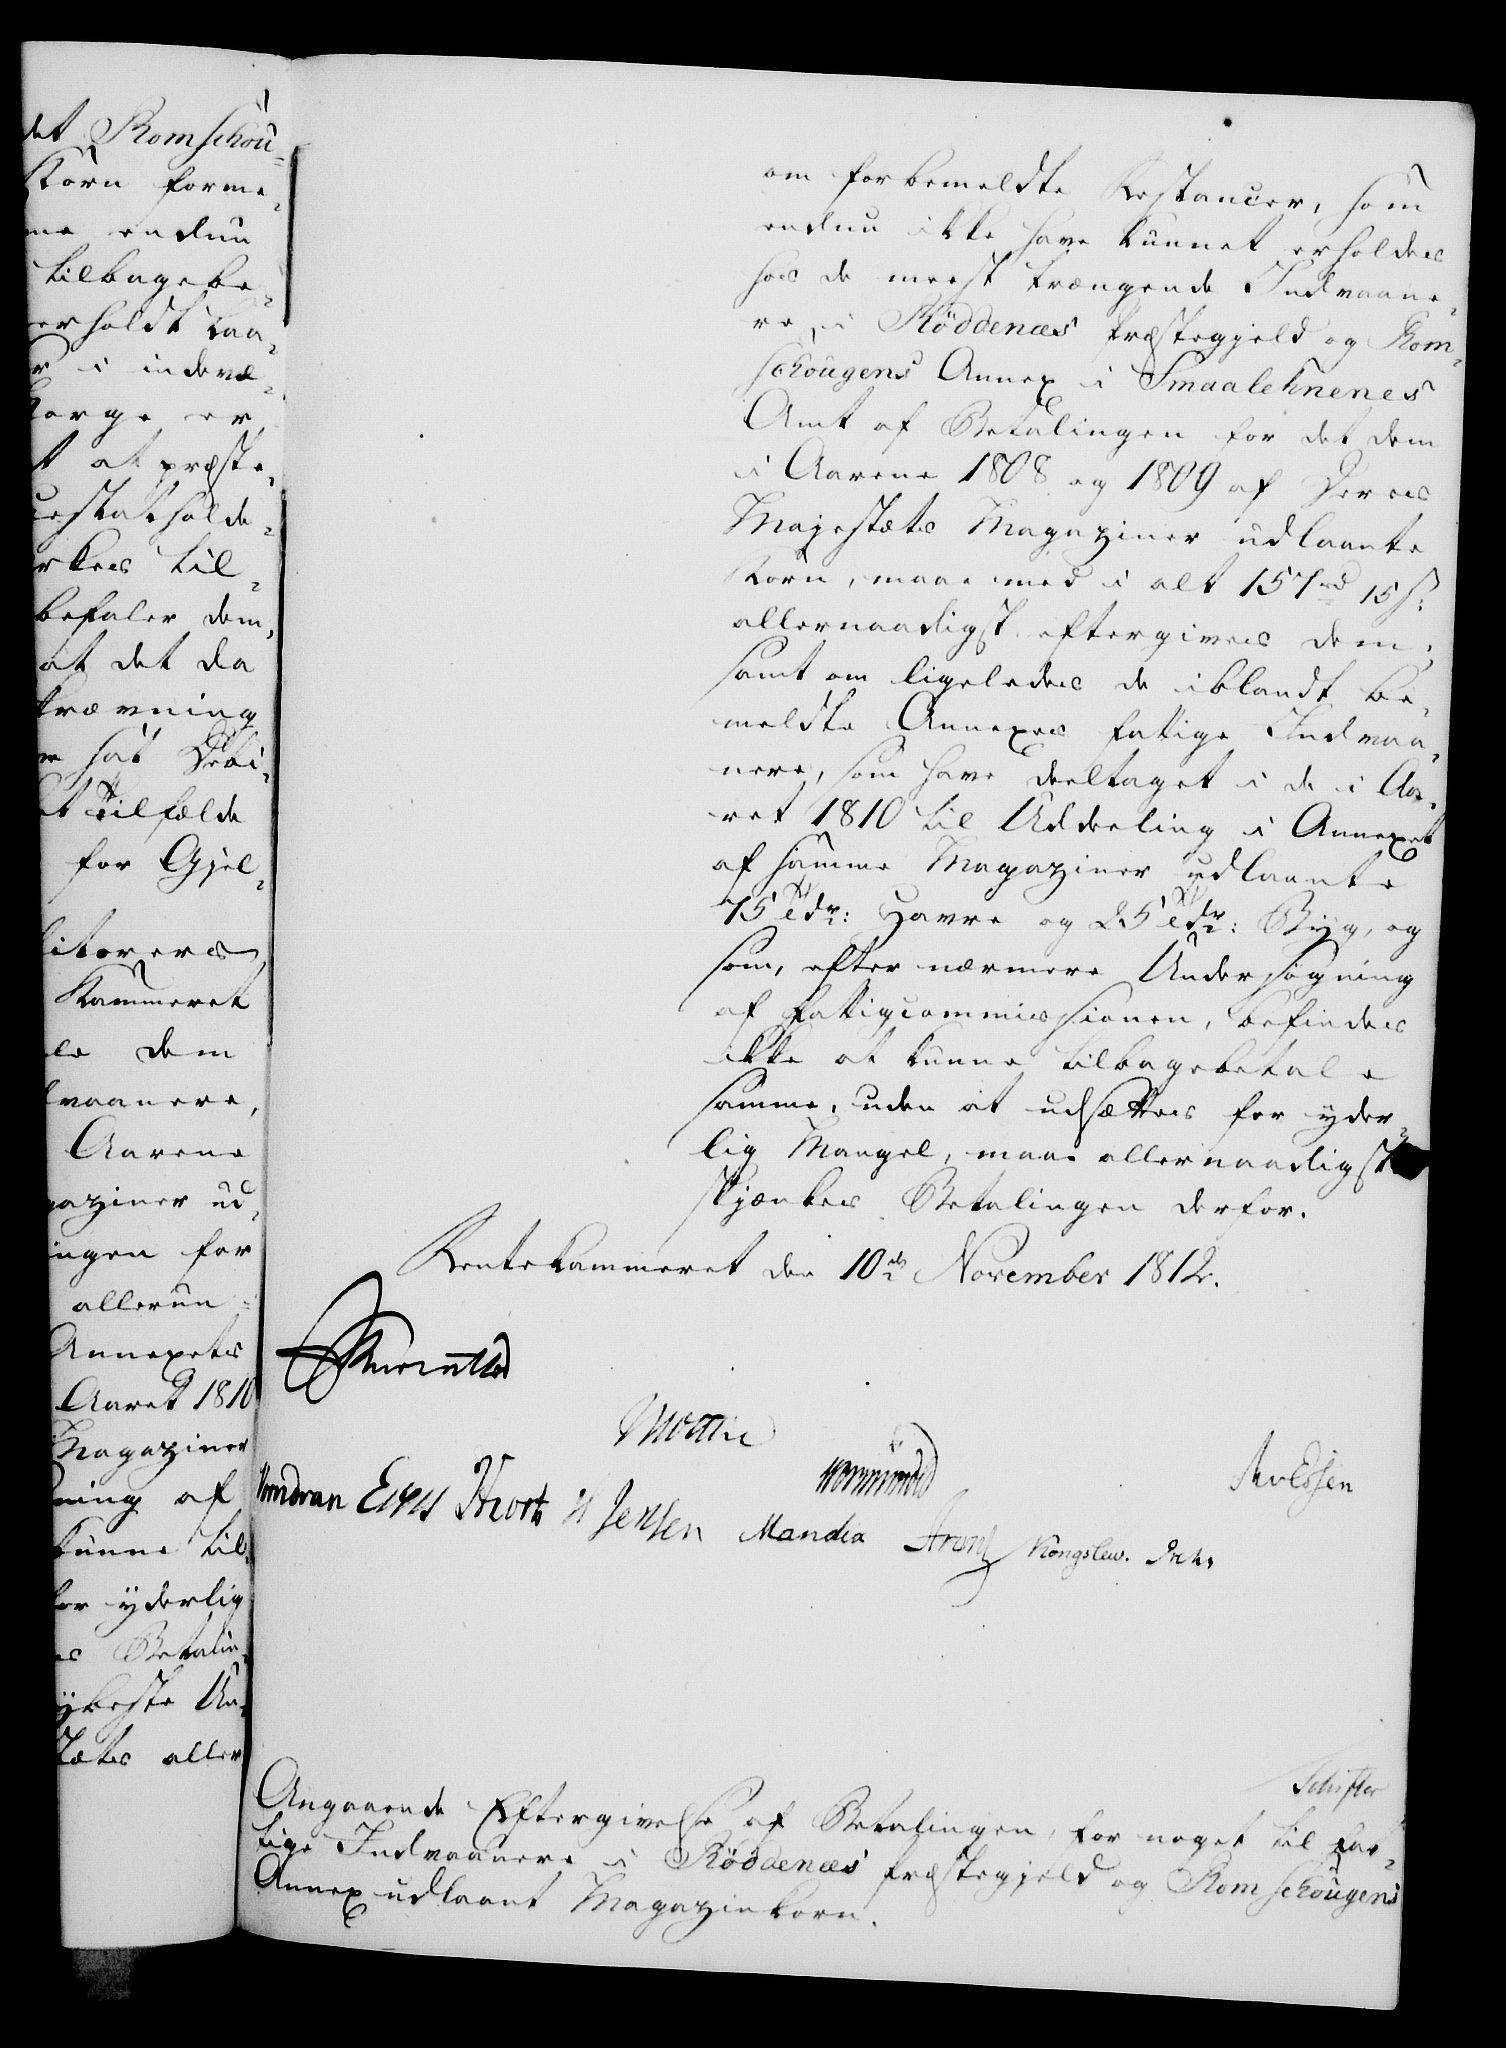 det Romschou-
Korn forme-
me endnu
tilbagebe-
erholdt Laa-
r i indevæ-
Norge er,
t at præste-
cestatholde-
rkes til-
befaler dem,
at det da
krævning
m hat Debi-
et Tilfælde
for Gjel-
bitorers
Kammeret
le dem
dvaanere,
Aarene
gaziner ud-
ingen for
allerun-
Annexets
Aaret 1810
Magaziner
ning af
kunne til-
for yderlig
s Betalin-
ybeste Un-
tæts aller
om forbemeldte Restancer, som
endnu ikke have kunnet erholdes
hos de meest trængende Indvaane-
re, i Röddenæs Præstegjeld og Rom-
schougens Annex i Smaalehnenes
Amt af Betalingen for det dem
i Aarene 1808 og 1809 af Deres
Majestæts Magaziner udlaante
Korn, maae med i alt 157 rd 15 s:
allernaadigst eftergives dem;
samt om ligeledes de iblandt be-
meldte Annexes fattige Indvaa-
nere, som have deeltaget i de i Aa-
ret 1810 til Uddeeling i Annexet
af samme Magaziner udlaante
75 Tdr: Havre og 25 Tdr: Byg, og
som, efter nærmere Undersøgning
af Fattigcommissionen, befindes
ikke at kunne tilbagebetale
samme, uden at udsættes for yder-
lig Mangel, maae allernaadigst
skjænkes Betalingen derfor.
Rentekammeret den 10de November 1812.
Mölln
Wormskiold
Knudsen
Hiort Jensen Mandix Kongslew.
Schifter
Angaaende Eftergivelse af Betalingen, for noget til fat-
tige Indvaanere i Röddenæs Præstegjeld og Romschougens
Annex udlaant Magazinkorn.